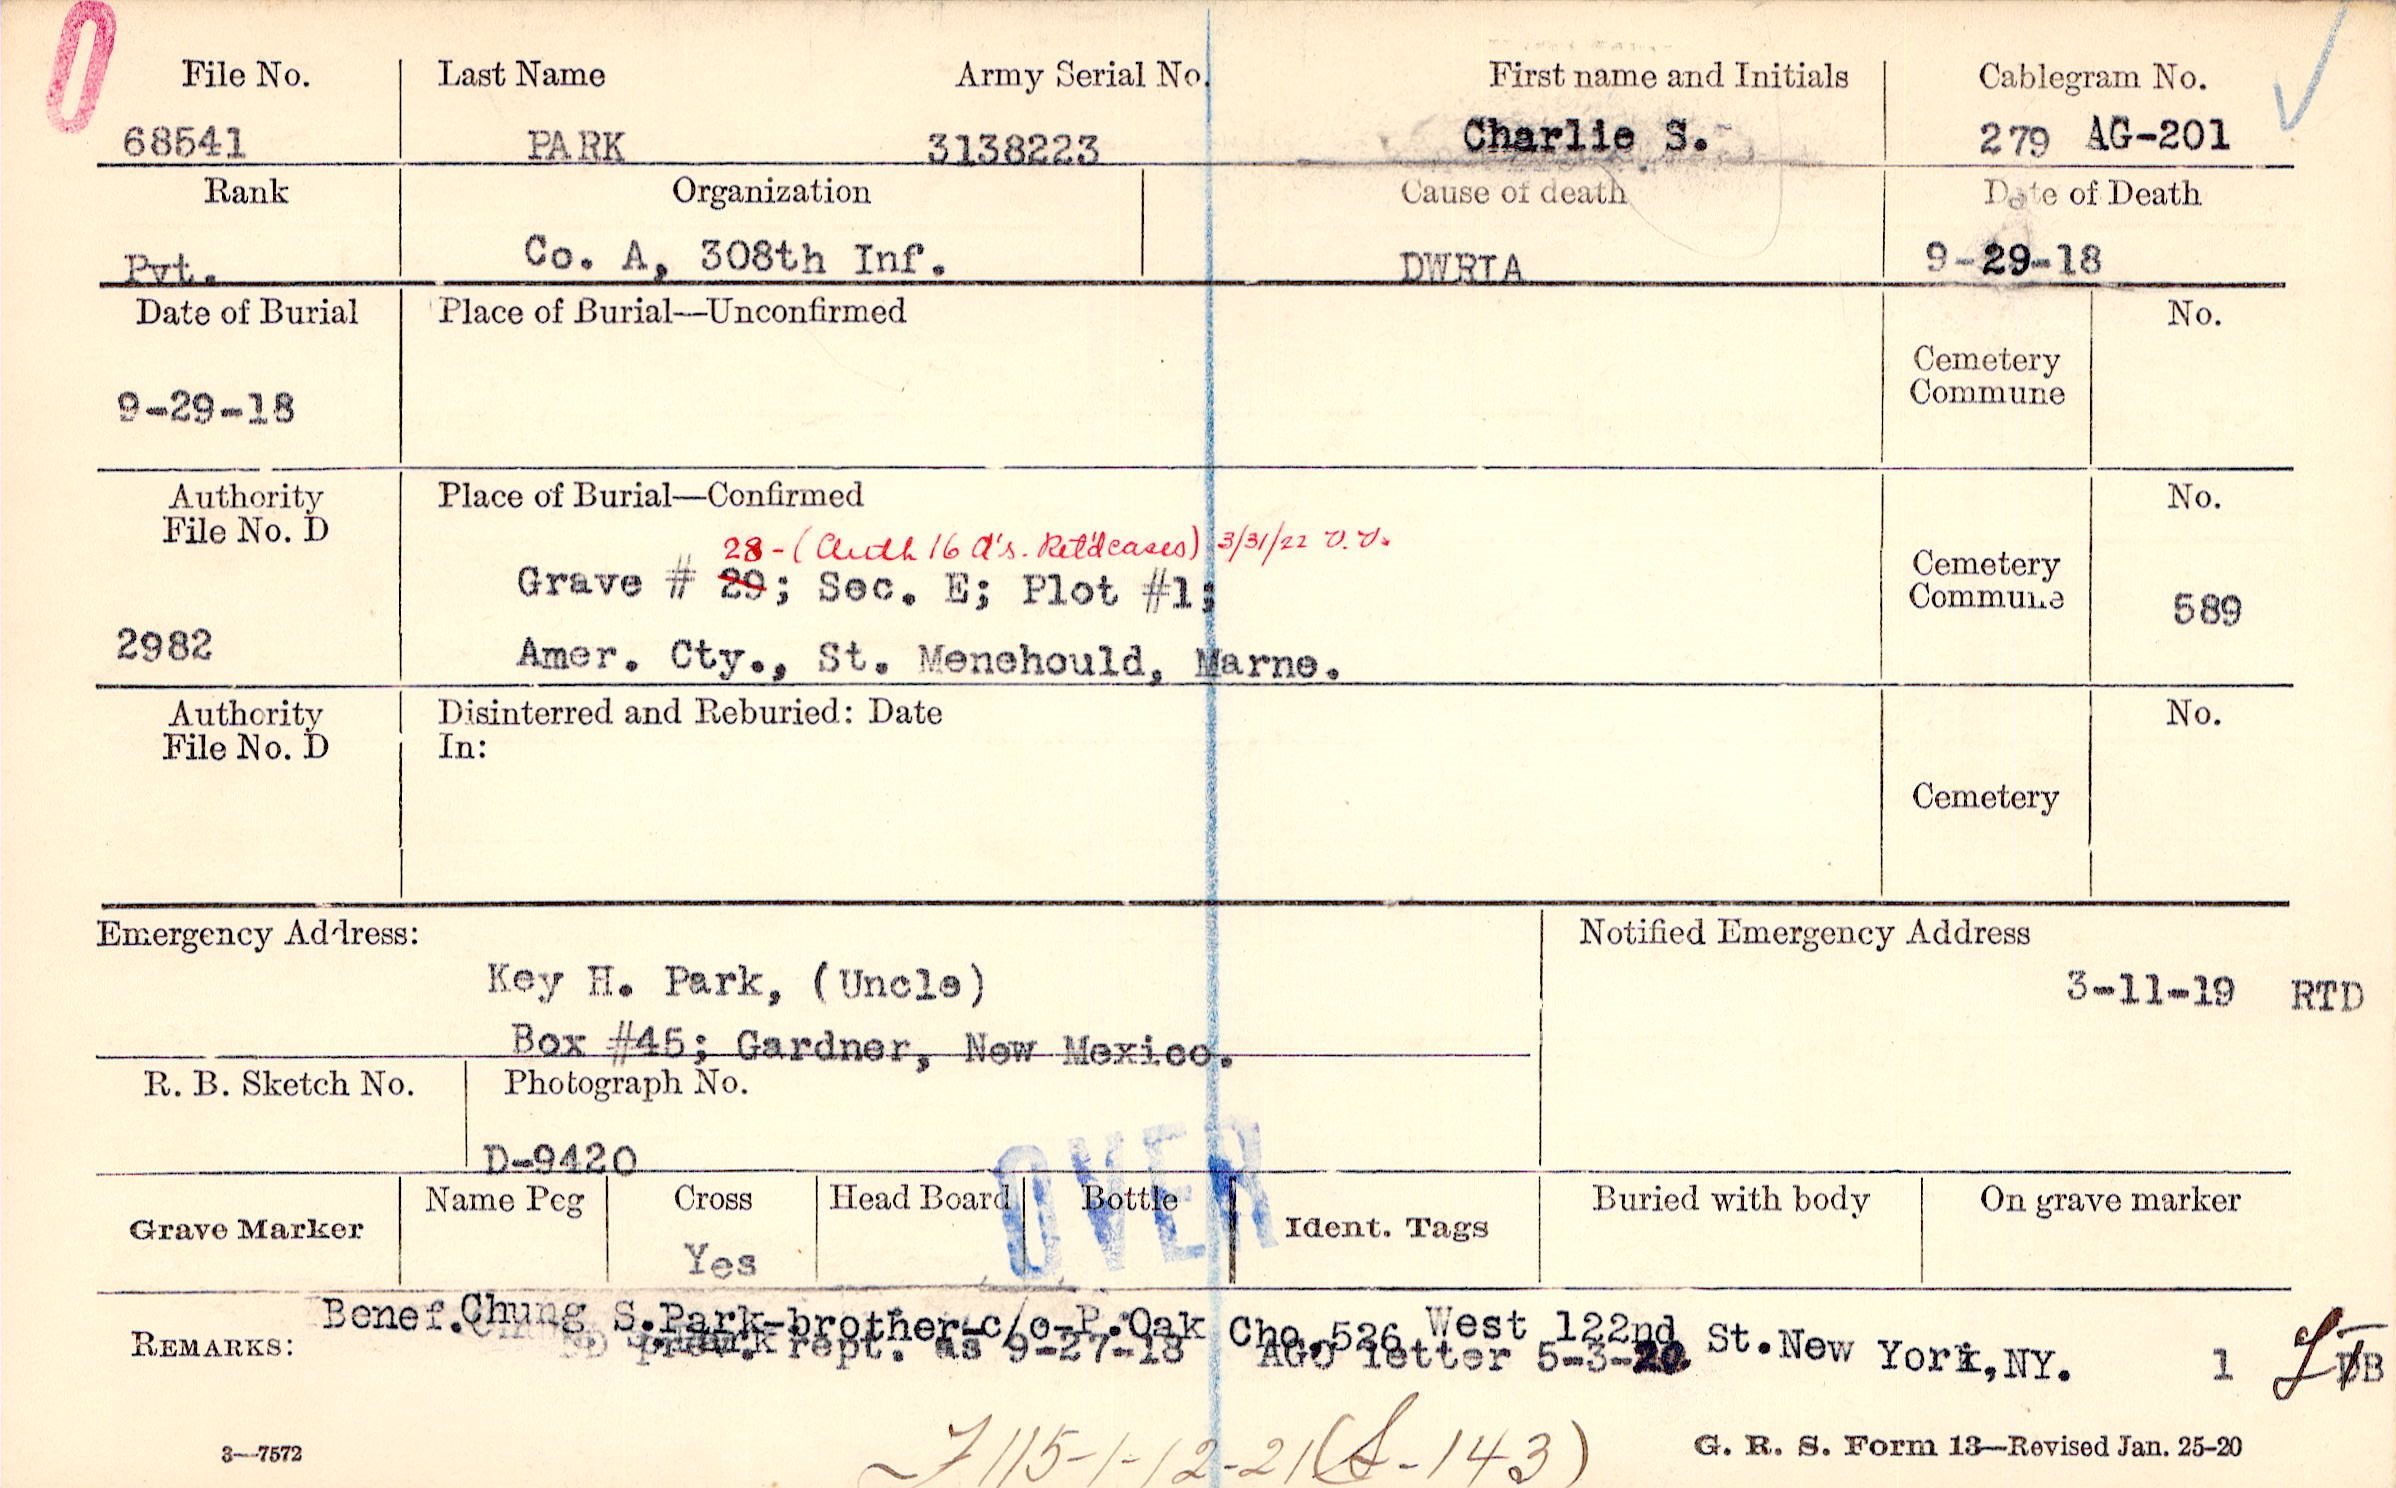 File No. Last Name Army Serial No. First name and Initials Cablegram No.
68541 PARK 3138223 Charlie S. 279 AG-201
Rank Organization Cause of death Date of Death
Pvt. Co. A, 308th Inf. DWRIA 9-29-18
Date of Burial Place of Burial—Unconfirmed No.
Cemetery
Commune
9-29-18
Authority Place of Burial—Confirmed No.
File No. D
28-(Auth 16 A's. Ret'd cases) 3/31/22
Grave # 29; Sec. E; Plot #1;
Cemetery
Commune 589
2982 Amer. Cty., St. Menehould, Marne.
Authority Disinterred and Reburied: Date No.
File No. D In:
Cemetery
Emergency Address: Notified Emergency Address
Key H. Park, (Uncle) 3-11-19 RTD
Box #45; Gardner, New Mexico.
R. B. Sketch No. Photograph No.
D-9420
OVER
Grave Marker Name Peg Cross Head Board Bottle Ident. Tags Buried with body On grave marker
Yes
Benef. Chung S. Park-brother-c/o-P. Oak Cho, 526 West 122nd St. New York, NY.
REMARKS: prev. rept. as 9-27-18 AGO letter 5-3-20. 1 DB
115-1-12-21(S-143)
3—7572 G. R. S. Form 13—Revised Jan. 25-20